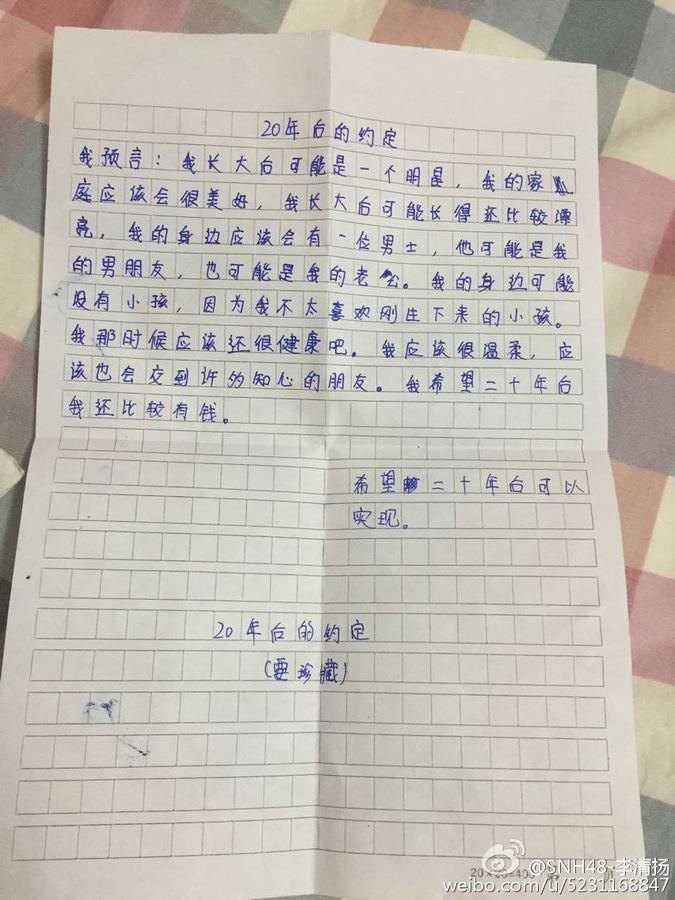 20年后的约定
我预言：我长大后可能是一个明星，我的家
庭应该会很美好，我长大后可能长得还比较漂
亮，我的身边应该会有一位男士，他可能是我
的男朋友，也可能是我的老公。我的身边可能
没有小孩，因为我不太喜欢刚生下来的小孩。
我那时候应该还很健康吧。我应该很温柔，应
该也会交到许多知心的朋友。我希望二十年后
我还比较有钱。
希望二十年后可以
实现。
20年后的约定
(要珍藏)
20×20=400
@SNH48-李清扬
weibo.com/u/5231168847